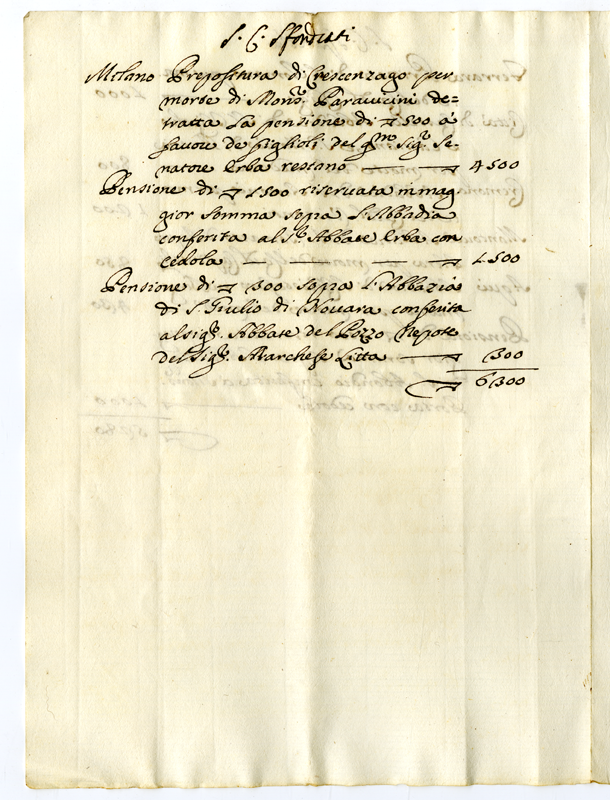 S. C. Sfondrati
Milano Prepositura di Crescenzago per
morte di Mons.r Paravicini de=
tratta la pensione di 1500 à
favore de figlioli del q.m Sig.r Se-
natore Erba restano 4500
Pensione di 1500 riservata in mag
gior somma sopra l'Abbadia
conferita al S.r Abbate Erba con
cedola 1500
Pensione di 300 sopra l'Abbazia
di S. Giulio di Novara conferita
al sig.r Abbate del Pozzo Nepote
del Sig.r Marchese Litta 300
6300